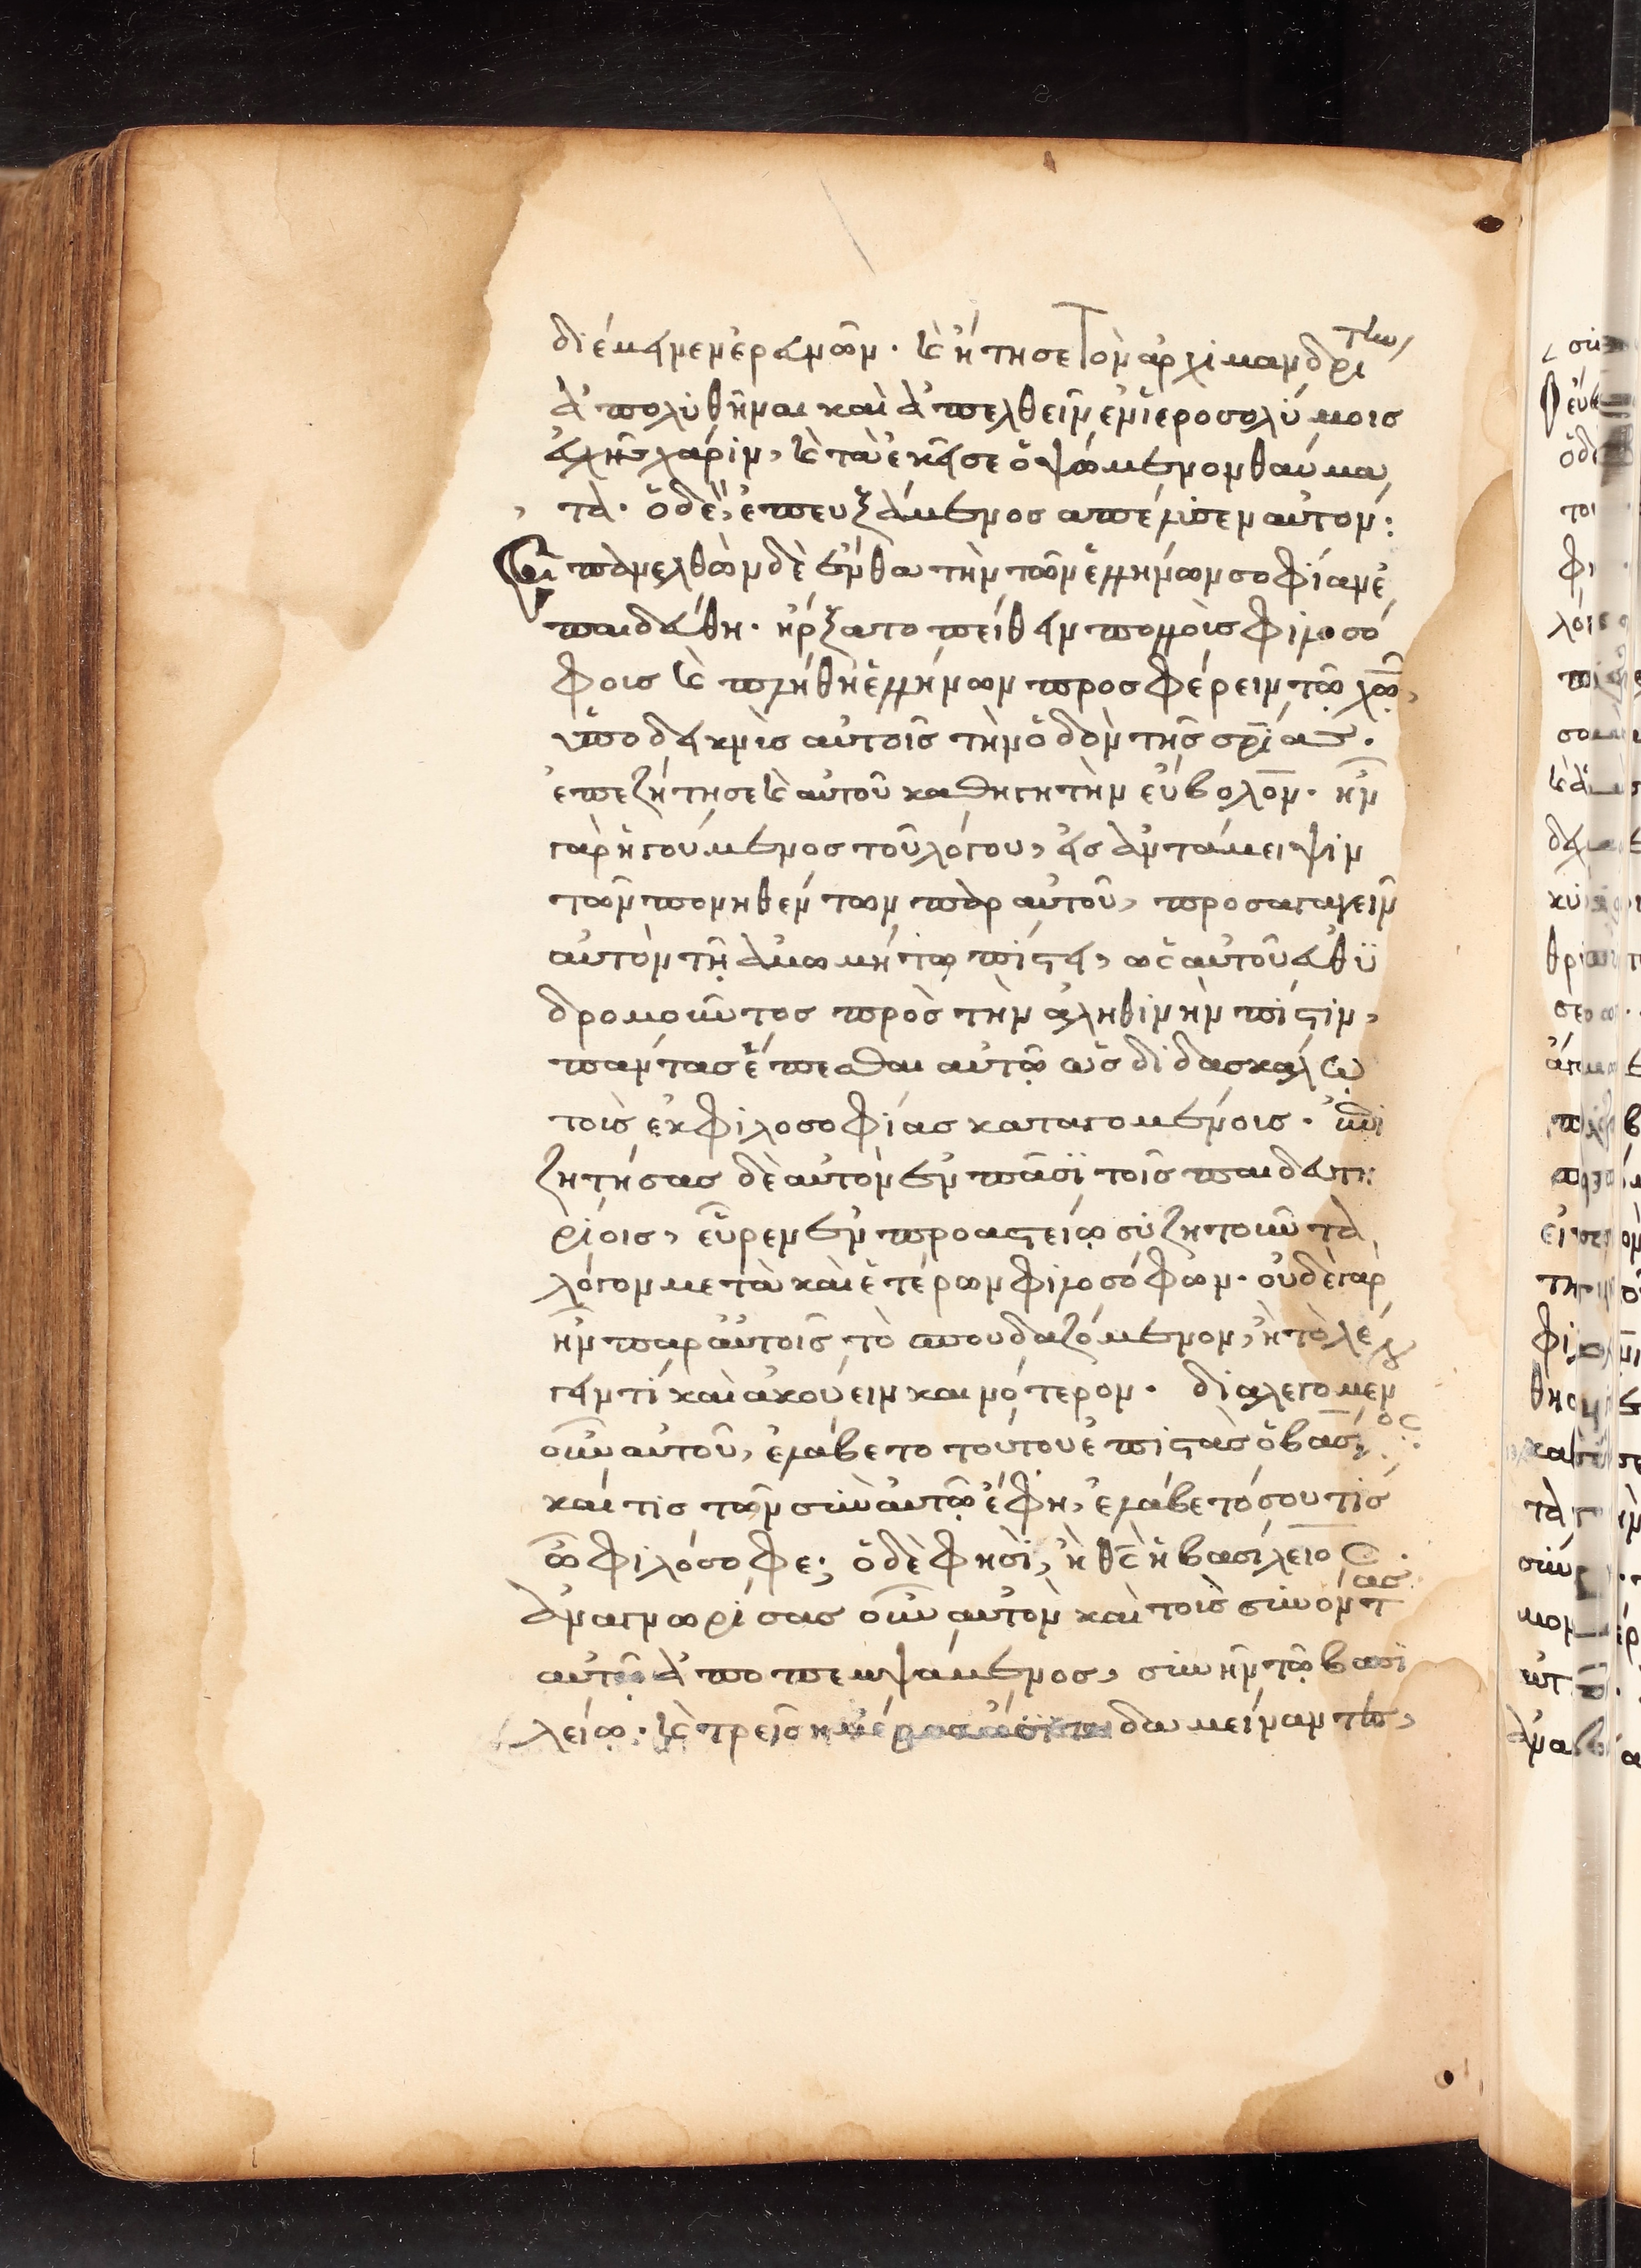 διέμεινεν ἐρευνῶν. καὶ ἤτησε τὸν ἀρχιμανδρίτην
ἀπολυθῆναι καὶ ἀπελθεῖν ἐν ἱεροσολύμοις
εὐχῆς χάριν, καὶ τὰ ἐκεῖσε ὀψώμενον θαύμα
τα. ὁ δὲ, ἐπευξάμενος ἀπέλυσεν αὐτόν:
ἐπανελθὼν δὲ ἔνθα τὴν τῶν ἑλλήνων σοφίαν ἐ
παιδεύθη. ἤρξατο πείθειν πολλοῖς φιλοσό
φοις καὶ πλήθη ἑλλήνων προσφέρειν τῶ χῶ,
ὑποδεικνὺς αὐτοῖς τὴν ὁδὸν τῆς σρίας.
ἐπεζήτησε καὶ αὐτοῦ καθηγητὴν εὔβολον. ἦν
γὰρ ἡγούμενος τοῦ λόγου, εἰς ἀντάμειψιν
τῶν πονηθέντων παρ αὐτοῦ, προσαγαγεῖν
αὐτὸν τῆ ἀμωμήτω πίστει, ὡς αὐτοῦ εὐθυ
δρομοῦντος πρὸς τὴν ἀληθινὴν πίστιν,
πάντας ἕπεσθαι αὐτῶ ὡς διδασκάλω
τοῖς ἐκ φιλοσοφίας καταγομένοις. ἐπι
ζητήσας δὲ αὐτὸν ἐν πᾶσι τοῖς παιδευτη
ρίοις, εὗρεν ἐν προαστείω συζητοῦντα
λόγον μετὰ καὶ ἑτέρων φιλοσόφων. οὐδὲ γὰρ
ἦν παρ αὐτοῖς τὸ σπουδαζόμενον, ἢ τὸ λέ
γειν τί καὶ ἀκούειν καινότερον. διαλεγομέν
οὖν αὐτοῦ, ἐλάβετο τούτου ἐπιστὰς ὁ βασίλειος
καί τις τῶν σὺν αὐτῶ ἔφη, ἐλάβετό σου τίς
ὦ φιλόσοφε; ὁ δὲ φησὶ, ἢ θς ἢ βασίλειος.
ἀναγνωρίσας οὖν αὐτὸν καὶ τοῖς συνόντας
αὐτῶ ἀποπεμψάμενος, συνῆν τῶ βασι
λείω. καὶ τρεῖς ἡμέρας διαμείναντες,